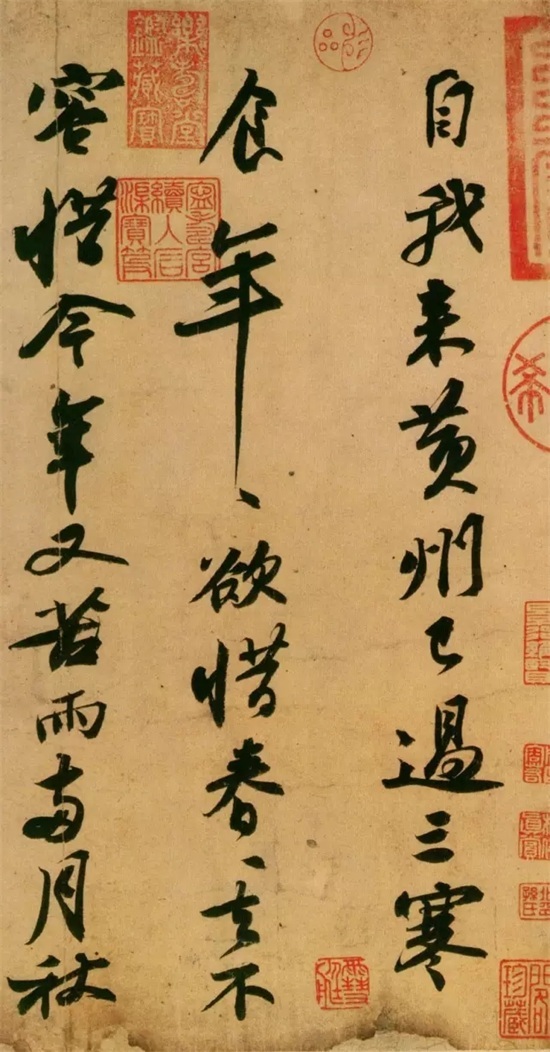 自我来黄州已過三寒
食年〻欲惜春〻去不
容惜今年又苦雨兩月秋